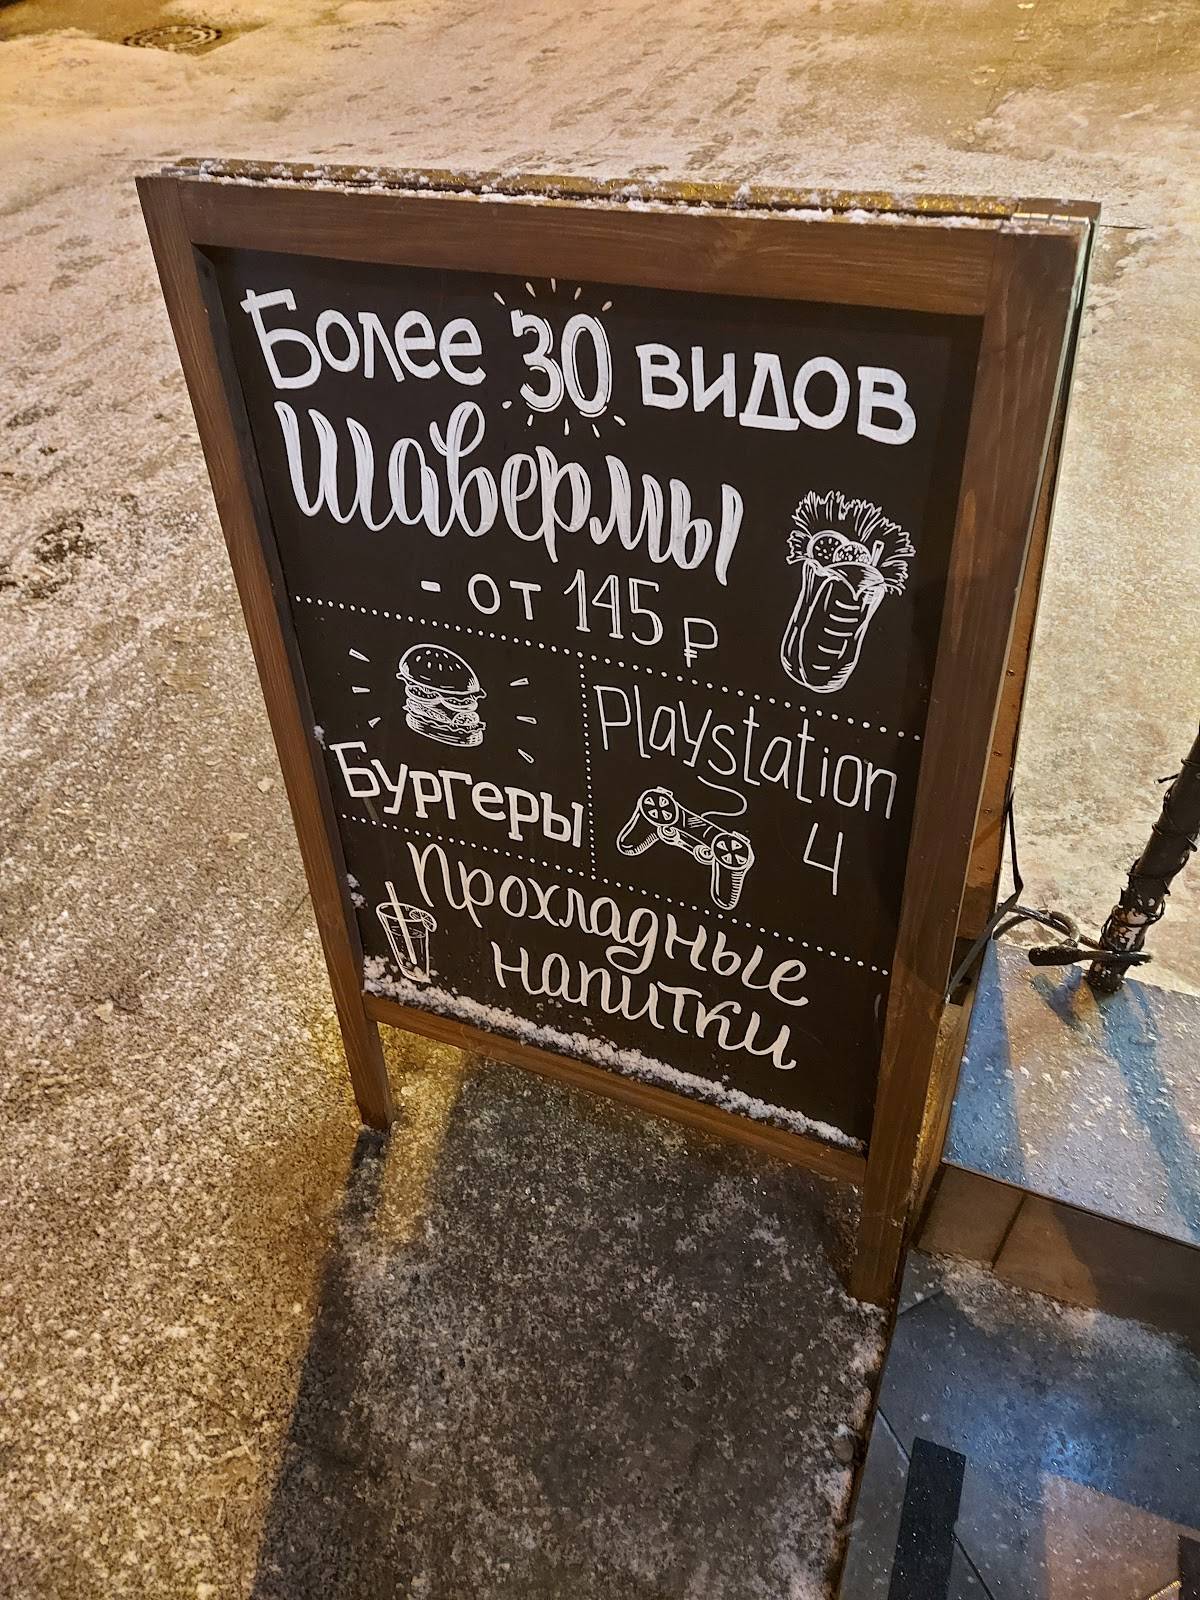 Более 30 видов
Шавермы
- от 145 ₽
Бургеры
Playstation
4
Прохладные
напитки